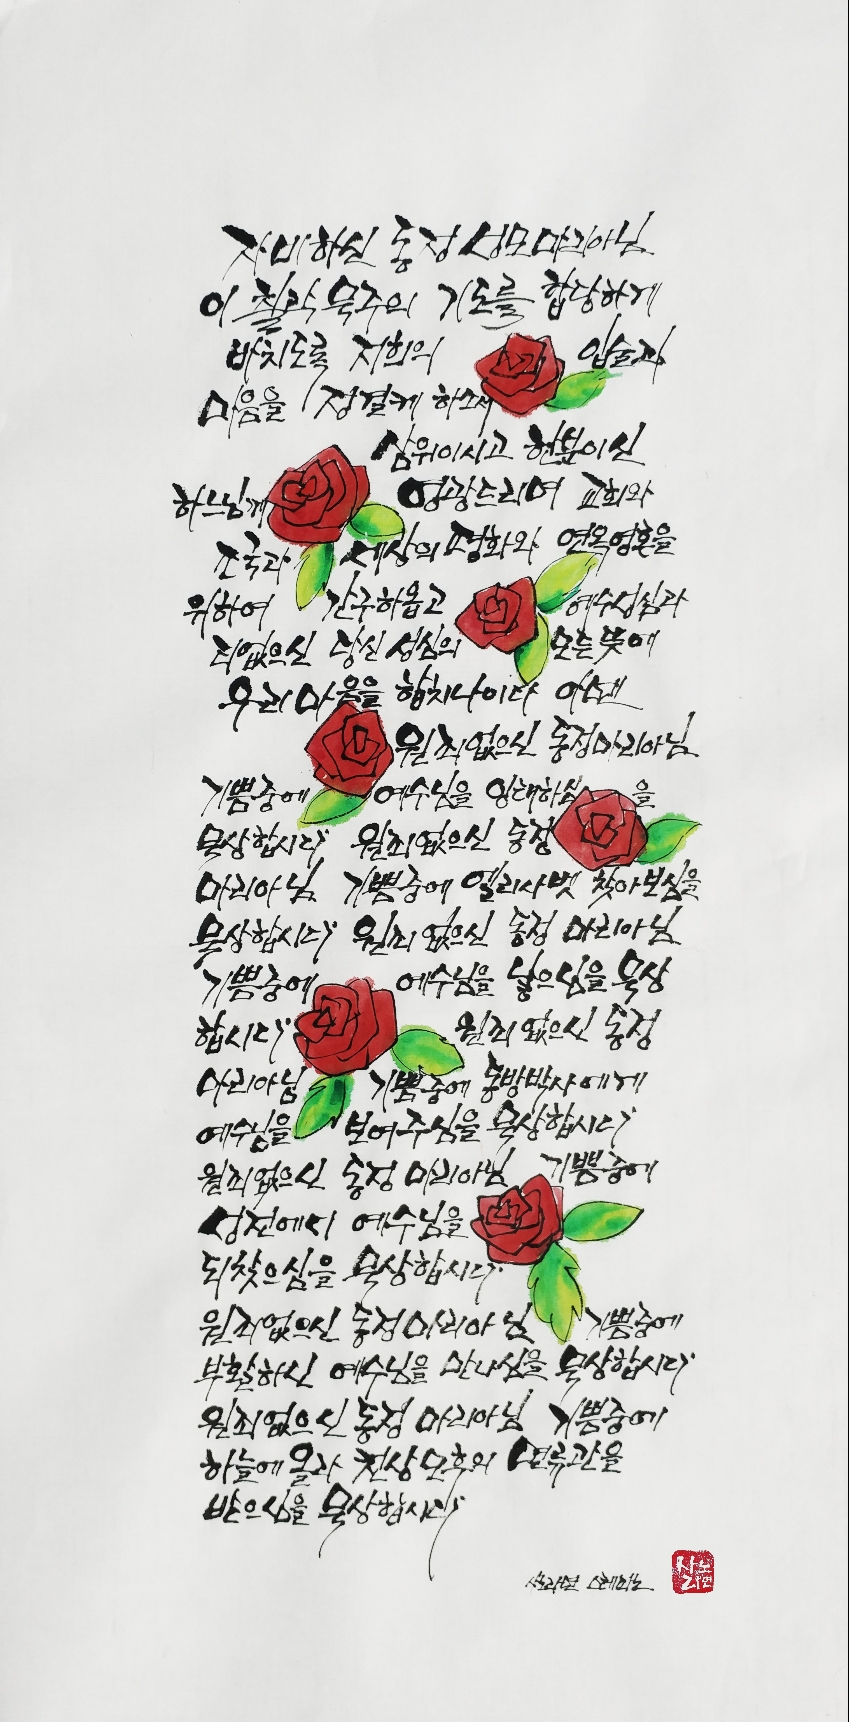 자비하신 동정 성모마리아님
이 칠락 묵주의 기도를 합당하게
바치도록 저희의 입술과
마음을 정결케 하소서
삼위이시고 한분이신
하느님께 영광드리며 교회와
조국과 세상의 평화와 연옥영혼을
위하여 간구하옵고 예수성심과
티없으신 당신 성심의 모든 뜻에
우리 마음을 합치나이다 아멘
원죄없으신 동정마리아님
기쁨중에 예수님을 잉태하심을
묵상합시다 원죄없으신 동정
마리아님 기쁨중에 엘리사벳 찾아보심을
묵상합시다 원죄없으신 동정 마리아님
기쁨중에 예수님을 낳으심을 묵상
합시다 원죄없으신 동정
마리아님 기쁨중에 동방박사에게
예수님을 보여주심을 묵상합시다
원죄없으신 동정 마리아님 기쁨중에
성전에서 예수님을
되찾으심을 묵상합시다
원죄없으신 동정마리아님 기쁨중에
부활하신 예수님을 만나심을 묵상합시다
원죄없으신 동정 마리아님 기쁨중에
하늘에 올라 천상모후의 면류관을
받으심을 묵상합시다